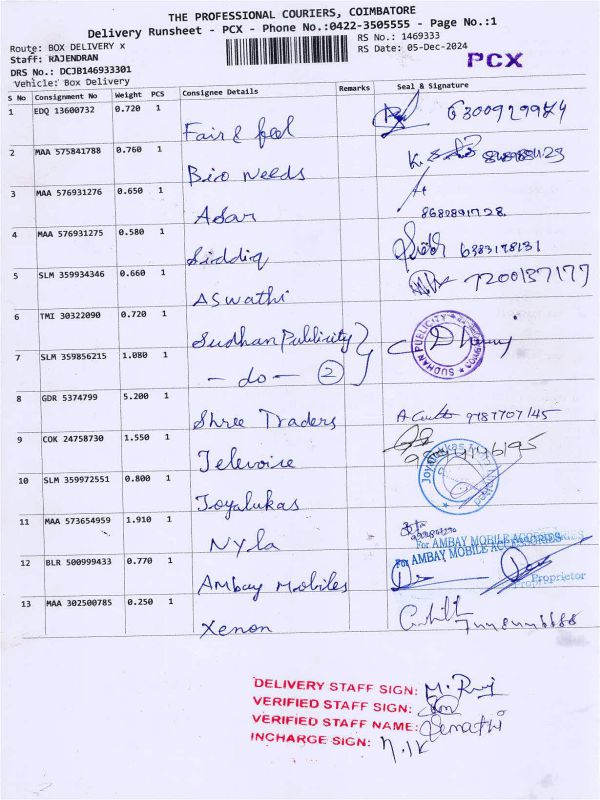 THE PROFESSIONAL COURIERS, COIMBATORE
Delivery Runsheet - PCX - Phone No.:0422-3505555 - Page No.:1
Route: BOX DELIVERY x
RS No.: 1469333
Staff: RAJENDRAN
RS Date: 05-Dec-2024
PCX
DRS No.: DCJB146933301
Vehicle: Box Delivery
S No Consignment No Weight PCS Consignee Details Remarks Seal & Signature
1 EDQ 13600732 0.720 1 Fair & feel
2 MAA 575841788 0.760 1 Bio Needs
3 MAA 576931276 0.650 1 Asar 8680891728
4 MAA 576931275 0.580 1 Siddiq 6383178131
5 SLM 359934346 0.660 1 ASwathi 7200137177
6 TMI 30322090 0.720 1 Sudhan Publicity SUDHAN PUBLICITY
7 SLM 359856215 1.080 1 - do - 2
8 GDR 5374799 5.200 1 Shree Traders
9 COK 24758730 1.550 1 Televoice
10 SLM 359972551 0.800 1 Joyalukas
11 MAA 573654959 1.910 1 Nyla
12 BLR 500999433 0.770 1 Ambay Mobiles For AMBAY MOBILE ACCESSORIES
Proprietor
13 MAA 302500785 0.250 1 Xenon
DELIVERY STAFF SIGN:
VERIFIED STAFF SIGN:
VERIFIED STAFF NAME:
INCHARGE SIGN: